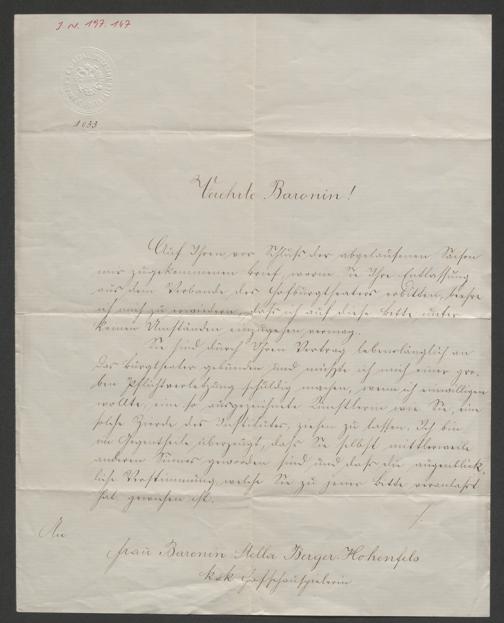 J. N. 197.147
1033
Verehrte Baronin!
Auf Ihren vor Schluß der abgelaufenen Saison
mir zugekommenen Brief, worin Sie Ihre Entlassung
aus dem Verbande des Hofburgtheaters erbitten, beehre
ich mich zu erwidern, daß ich auf diese Bitte unter
keinen Umständen einzugehen vermag.
Sie sind durch Ihren Vertrag lebenslänglich an
das Burgtheater gebunden und müßte ich mich einer gro-
ben Pflichtverletzung schuldig machen, wenn ich einwilligen
wollte, eine so ausgezeichnete Künstlerin wie Sie, eine
solche Zierde des Institutes, ziehen zu lassen. Ich bin
im Gegentheile überzeugt, daß Sie selbst mittlerweile
anderen Sinnes geworden sind und daß die augenblick-
liche Verstimmung, welche Sie zu jener Bitte veranlaßt
hat, gewichen ist.
An
Frau Baronin Stella Berger-Hohenfels
k. k. Hofschauspielerin